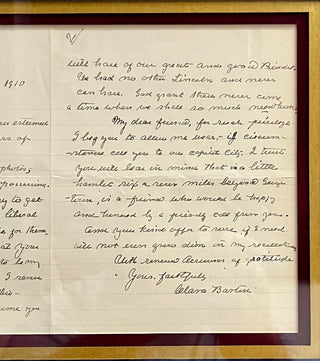 1910
esteemed
rs of
photos,
possession.
ry to get
liberal
e for them,
at your
to my
I renew
his-
sume you
2/
will have of our great and good
We had no other Lincoln and never
can have. God grant there never come
a time when we shall so much need him.
My dear friend, for such privilege
I beg you to allow me use, if circum-
stances call you to our capital city, I trust
you will bear in mind that in a little
hamlet six or seven miles beyond
is a friend who would be happy
and honored by a friendly call from you.
And your kind offer to serve, if I need
will not even grow dim in my
With renewed assurances of gratitude
Yours faithfully
Clara Barton